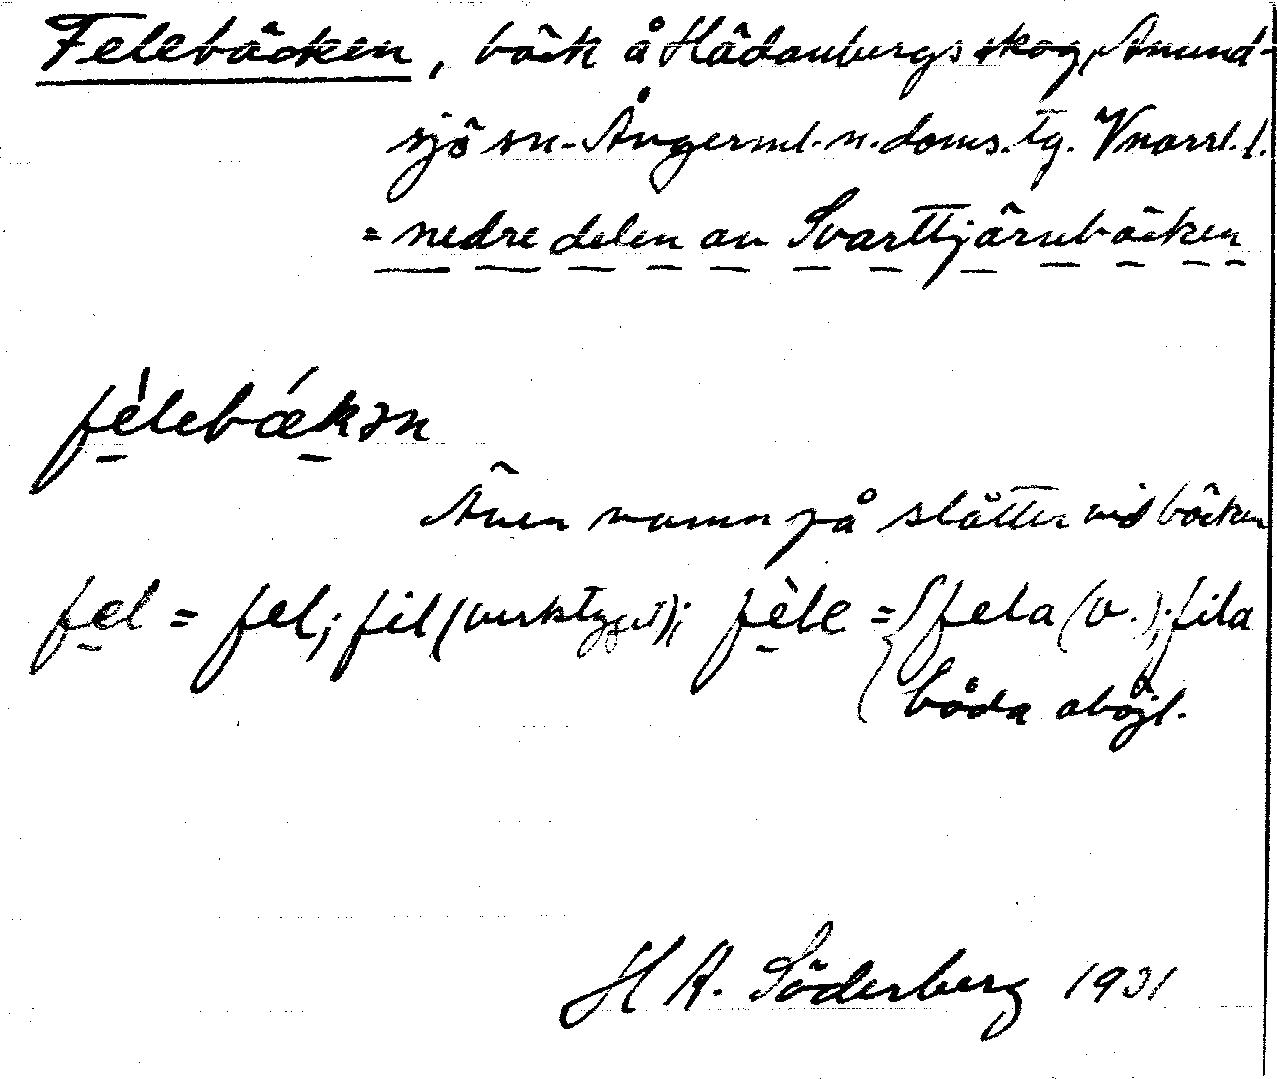 Felebäcken, bäck å Hädanbergs skog, Anund-
sjö sn. Ångerml. n. doms. tg. Vnorrl. l.
= nedre delen av Svarttjärnbäcken
fèlebǽkən
Även namn på slåtter vid bäcken
fel = fel; fil (verktyget); fèle = { fela (v.); fila
båda oböjl.
H A. Söderberg 1931